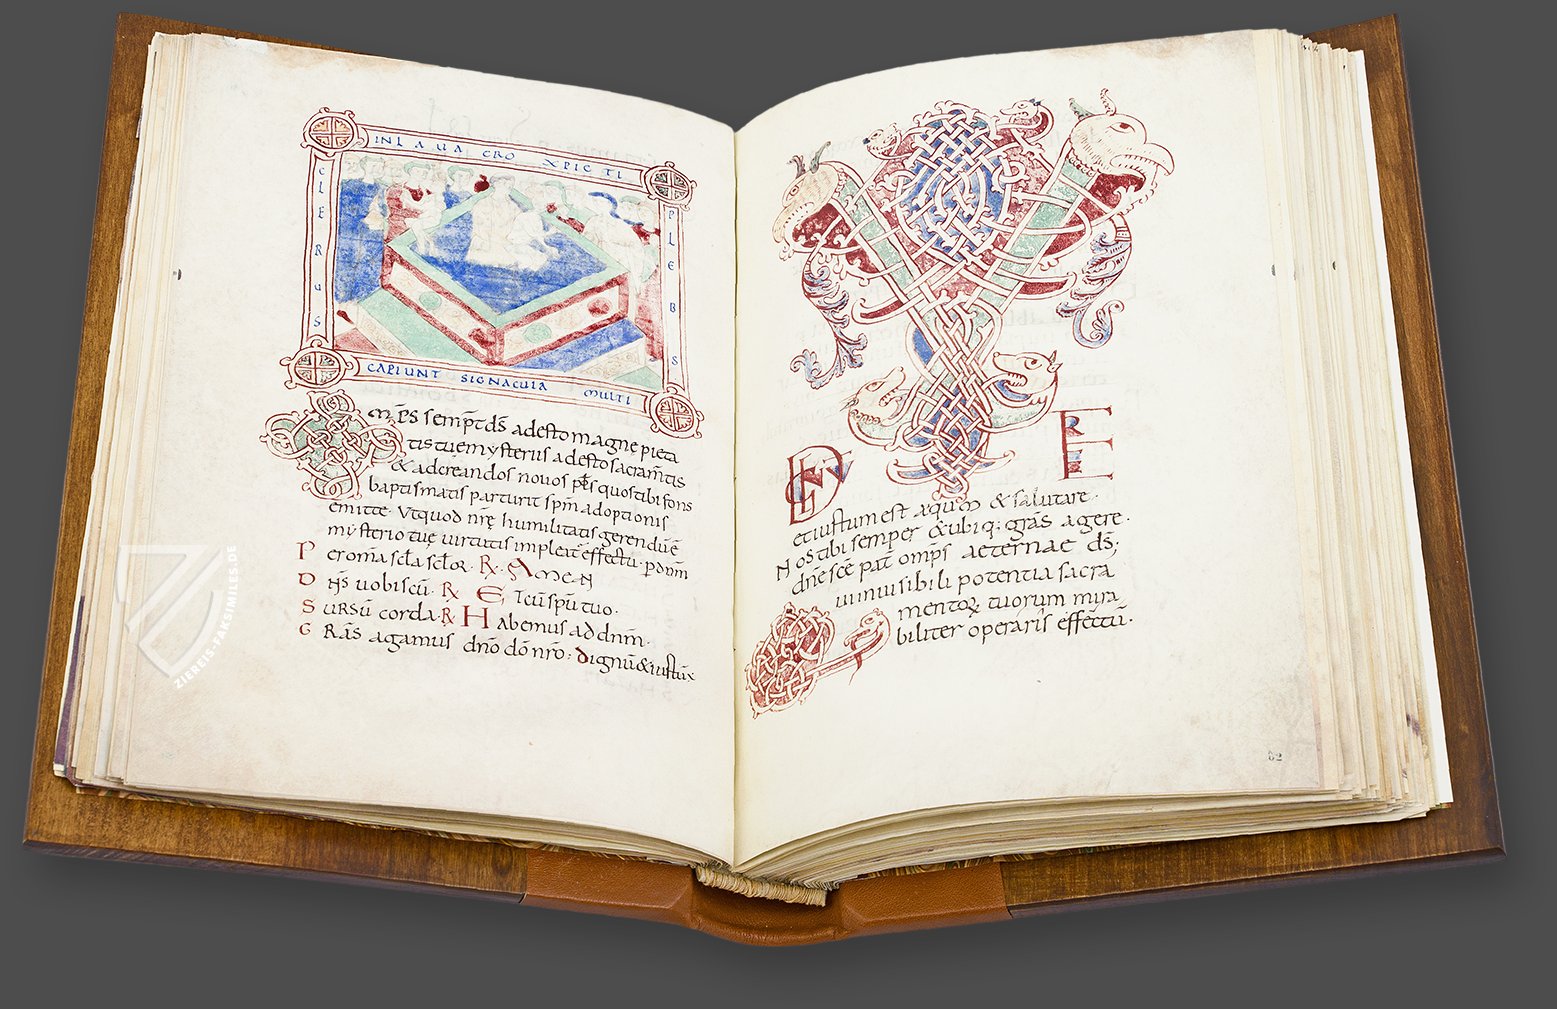 IN LAVACRO XPICTI
CLERUS
PLEBS
CAPIUNT SIGNACULA MULTI
Omps sempt ds adesto magnę pieta
tis tuę mysteriis adesto sacramtis
& adcreandos novos ppls quos tibi fons
baptismatis parturit spm adoptionis
emitte Ut quod nrę humilitatis gerendu e
mysterio tuę virtutis impleat effectu pdnm
Per oma scla sclor R Amen
Dns vobiscu R Et cu spu tuo
Sursu corda R Habemus ad dnm
Gras agamus dno do nro Dignu & iustu
VERE
et iustum est aequm & salutare
Nos tibi semper & ubiq; gras agere
dne sce pat omps aeternae ds;
ui invisibili potentia sacra
mentor tuorum mira
biliter operaris effectu
62
ZIEREIS-FAKSIMILES.DE